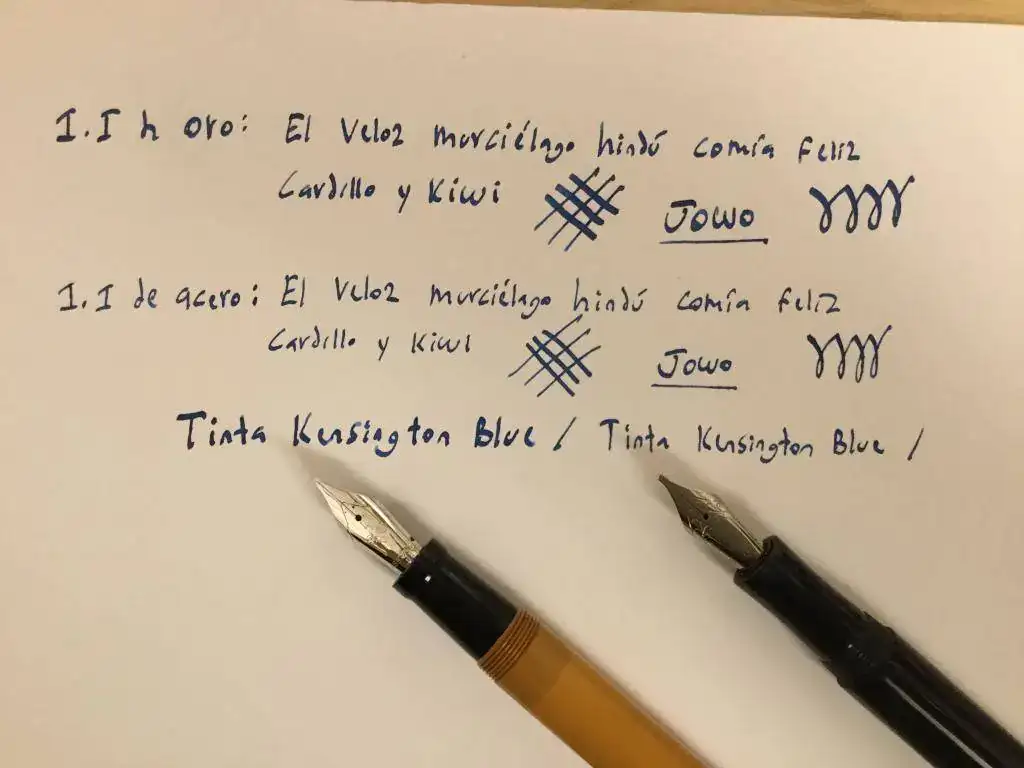 1.1 h oro: El Veloz murciélago hindú comía feliz
Cardillo y Kiwi Jowo
1.1 de acero: El Veloz murciélago hindú comía feliz
Cardillo y Kiwi Jowo
Tinta Kensington Blue / Tinta Kensington Blue /